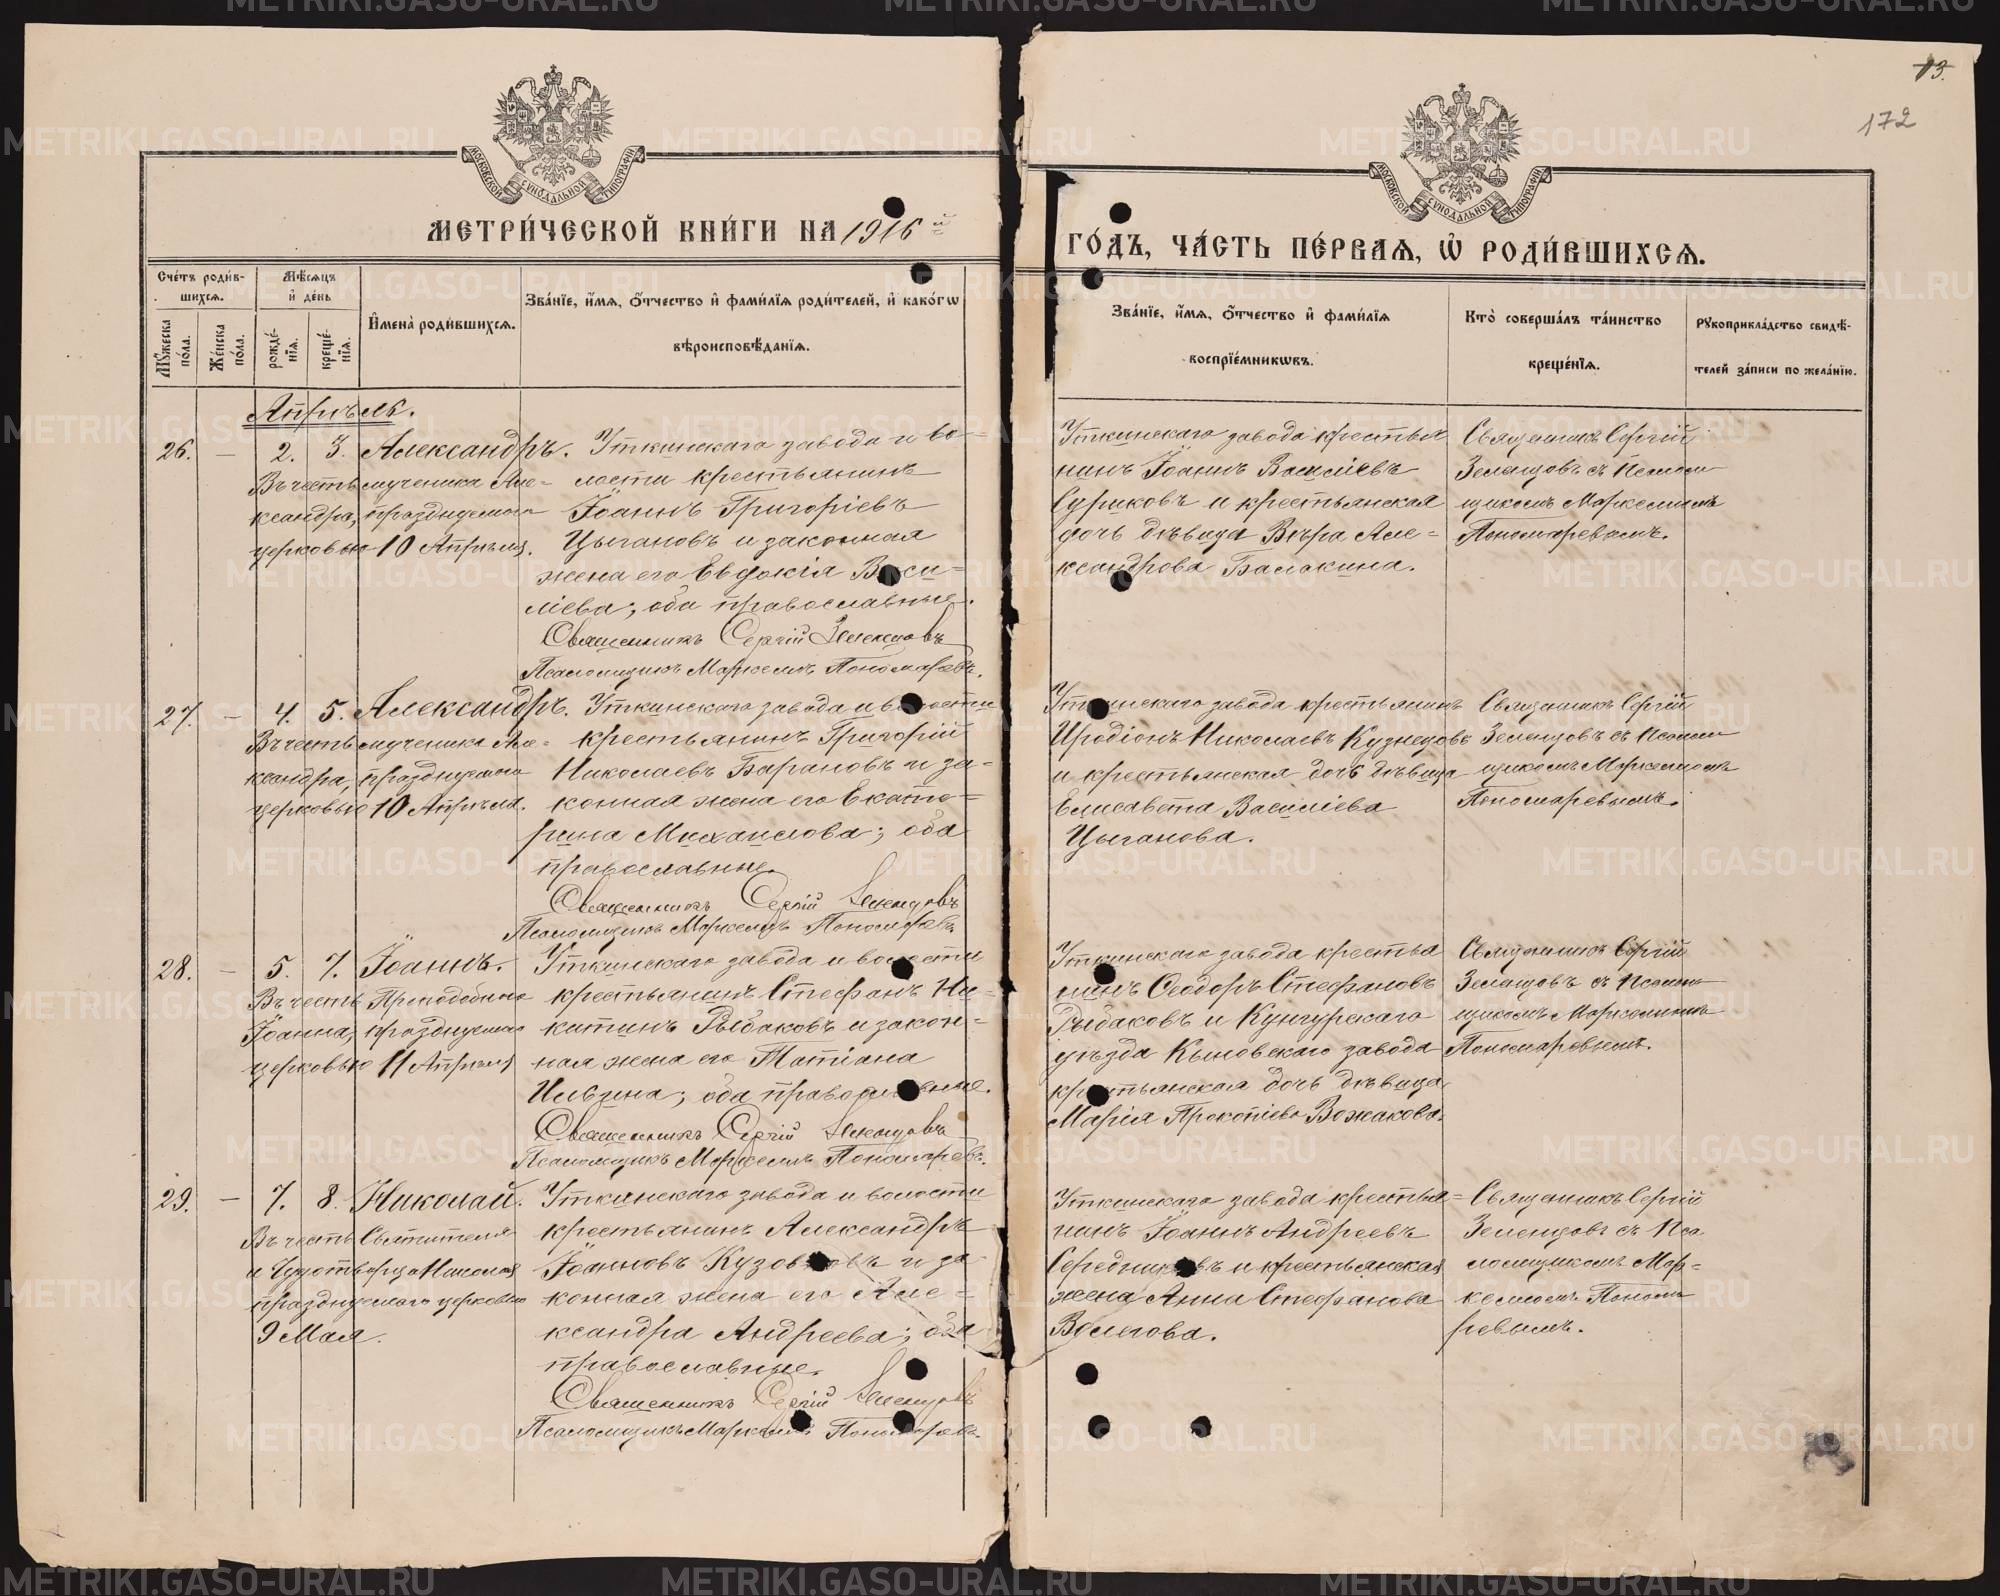 13.
172
МОСКОВСКОЙ СѴНОДАЛЬНОЙ ТИПОГРАФИИ
МОСКОВСКОЙ СѴНОДАЛЬНОЙ ТИПОГРАФИИ
МЕТРИ́ЧЕСКОЙ КНИ́ГИ НА 1916 й
ГО́ДЪ, ЧА́СТЬ ПЕ́РВАѦ, Ѡ҆ РОДИ́ВШИХСѦ.
Сче́тъ роди́в-
шихсѧ.
Мꙋ́жеска по́ла.
Же́нска по́ла.
Мѣ́сѧцъ
и҆ де́нь
рожде́-
нїѧ.
креще́-
нїѧ.
И҆мена̀ роди́вшихсѧ.
Зва́нїе, и҆́мѧ, ѻ҆́тчество и҆ фами́лїѧ роди́телей, и҆ како́гѡ
вѣроисповѣ́данїѧ.
Зва́нїе, и҆́мѧ, ѻ҆́тчество и҆ фами́лїѧ
воспрїе́мникѡвъ.
Кто̀ соверша́лъ та́инство
креще́нїѧ.
Рꙋкоприкла́дство свидѣ́-
телей за́писи по жела́нїю.
Апрѣль.
26. — 2. 3. Александръ.
Въ честь мученика Але-
ксандра, празднуемаго
церковью 10 Апрѣля.
Уткинскаго завода и во-
лости крестьянинъ
Іоаннъ Григоріевъ
Цыгановъ и законная
жена его Евдокія Васи-
ліева; оба православные.
Священникъ Сергій Зеленцовъ
Псаломщикъ Маркеллъ Пономаревъ.
Уткинскаго завода крестья
нинъ Іоаннъ Василіевъ
Суриковъ и крестьянская
дочь дѣвица Вѣра Але-
ксандрова Балакина.
Священникъ Сергій
Зеленцовъ съ Псалом
щикомъ Маркелломъ
Пономаревымъ.
27. — 4. 5. Александръ.
Въ честь мученика Але-
ксандра, празднуемаго
церковью 10 Апрѣля.
Уткинскаго завода и волости
крестьянинъ Григорій
Николаевъ Барановъ и за-
конная жена его Екате-
рина Михаилова; оба
православные.
Священникъ Сергій Зеленцовъ
Псаломщикъ Маркеллъ Пономаревъ
Уткинскаго завода крестьянинъ
Иродіонъ Николаевъ Кузнецовъ
и крестьянская дочь дѣвица
Елисавета Василіева
Цыганова.
Священникъ Сергій
Зеленцовъ съ Псалом
щикомъ Маркелломъ
Пономаревымъ.
28. — 5. 7. Іоаннъ.
Въ честь Преподобнаго
Іоанна, празднуемаго
церковью 11 Апрѣля
Уткинскаго завода и волости
крестьянинъ Стефанъ Ни-
китинъ Рыбаковъ и закон-
ная жена его Татіана
Ильина; оба православные.
Священникъ Сергій Зеленцовъ
Псаломщикъ Маркеллъ Пономаревъ.
Уткинскаго завода крестья
нинъ Ѳеодоръ Стефановъ
Рыбаковъ и Кунгурскаго
уѣзда Кыновскаго завода
крестьянская дочь дѣвица
Марія Прокопіева Вожакова.
Священникъ Сергій
Зеленцовъ съ Псалом
щикомъ Маркелломъ
Пономаревымъ.
29. — 7. 8. Николай.
Въ честь Святителя
и Чудотворца Николая
празднуемаго церковью
9 Мая.
Уткинскаго завода и волости
крестьянинъ Александръ
Іоанновъ Кузовковъ и за-
конная жена его Але-
ксандра Андреева; оба
православные.
Священникъ Сергій Зеленцовъ
Псаломщикъ Маркеллъ Пономаревъ.
Уткинскаго завода крестья-
нинъ Іоаннъ Андреевъ
Середниковъ и крестьянская
жена Анна Стефанова
Волегова.
Священникъ Сергій
Зеленцовъ съ Пса
ломщикомъ Мар-
келломъ Понома
ревымъ.
METRIKI.GASO-URAL.RU